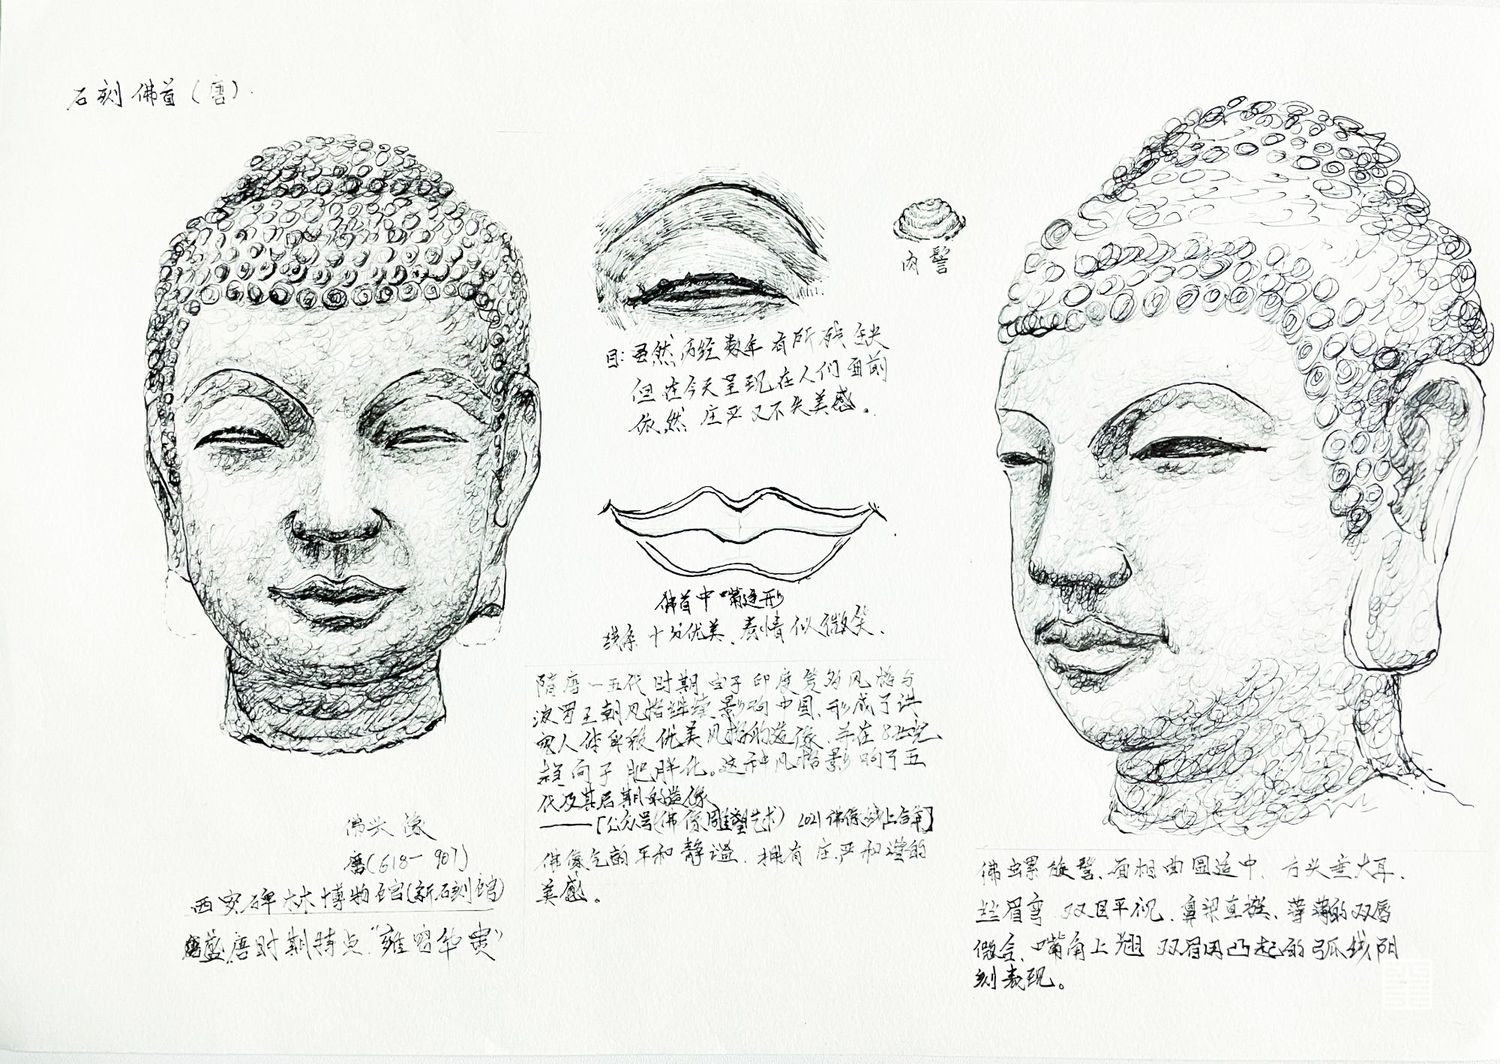 石刻佛首（唐）.
肉髻
目: 虽然历经数年有所残缺
但在今天呈现在人们面前
依然庄严又不失美感。
佛首中嘴造形
线条十分优美、表情似微笑.
隋唐—五代时期由于印度笈多风格与
波罗王朝风格继续影响中国、形成了洪
优美风格的造像、并在8世纪、
趋向于肥胖化。这种风格影响了五
代及其后期的造像、
——[公众号《佛像雕塑艺术》2021佛像线上合集]
佛像气韵平和静谧、拥有庄严和谐的
美感。
佛头像
唐(618—907)
西安碑林博物馆(新石刻馆)
盛唐时期特点“雍容华贵”
佛螺旋髻、面相曲圆适中、方头垂大耳、
丝眉弯、双目平视、鼻梁直挺、薄薄的双唇
微合、嘴角上翘 双眉用凸起的弧线阴
刻表现。